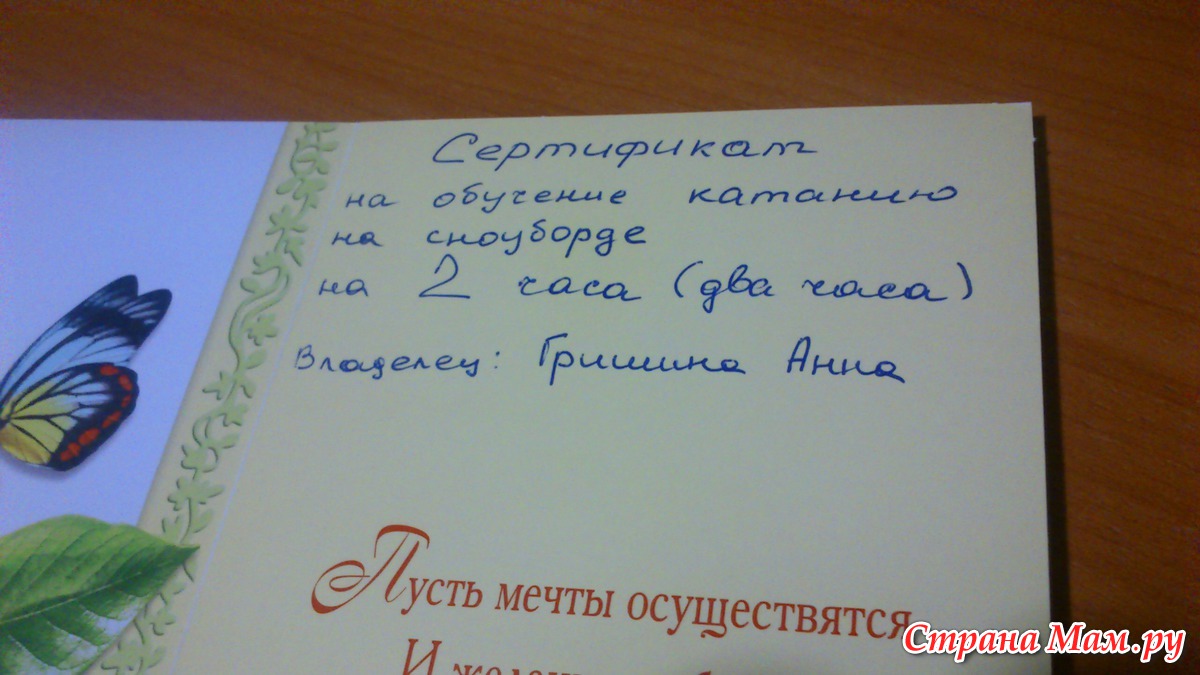 Сертификат
на обучение катанию
на сноуборде
на 2 часа (два часа)
Владелец: Гришина Анна
Пусть мечты осуществятся
И
Страна Мам.ру